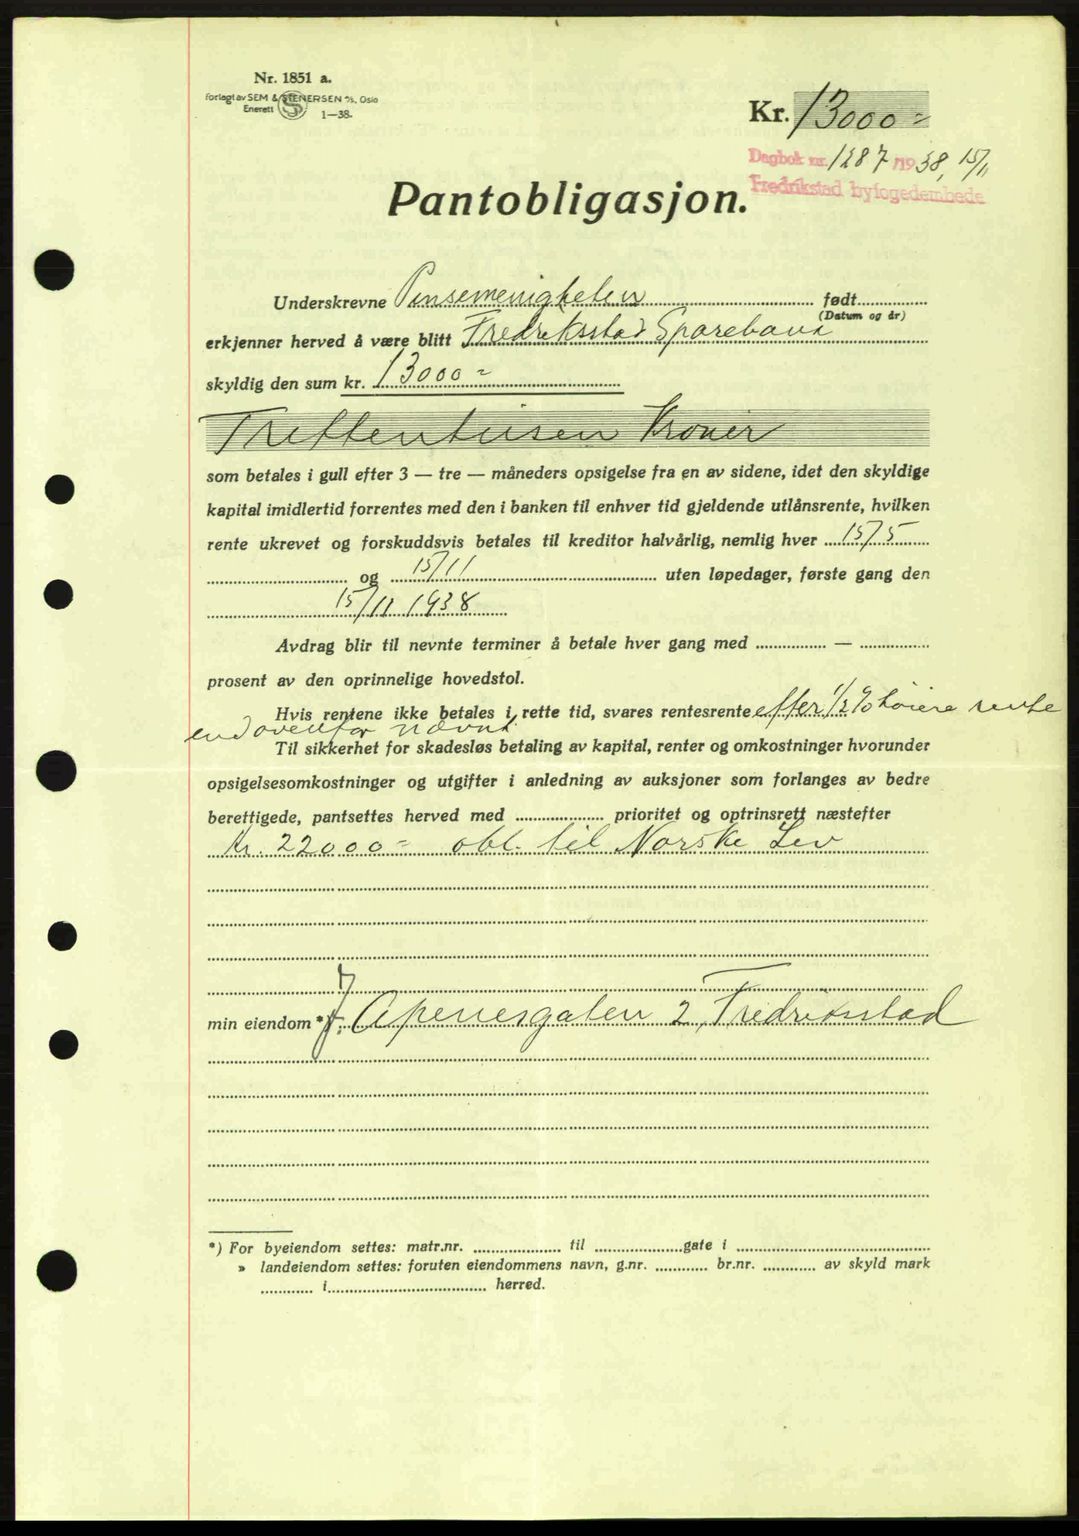 Nr. 1851 a.
Forlagt av SEM & STENERSEN A/S, Oslo
Enerett
1—38.
Kr. 13000 =
Dagbok nr. 1287 /1938, 15/11
Fredrikstad byfogedembede
Pantobligasjon.
Underskrevne Pinsemenigheten født
(Datum og år)
erkjenner herved å være blitt Fredriksstad Sparebank
skyldig den sum kr. 13000 =
Trettentusen Kroner
som betales i gull efter 3 — tre — måneders opsigelse fra en av sidene, idet den skyldige
kapital imidlertid forrentes med den i banken til enhver tid gjeldende utlånsrente, hvilken
rente ukrevet og forskuddsvis betales til kreditor halvårlig, nemlig hver 15/5
og 15/11 uten løpedager, første gang den
15/11 1938
Avdrag blir til nevnte terminer å betale hver gang med —
prosent av den oprinnelige hovedstol.
Hvis rentene ikke betales i rette tid, svares rentesrente efter 1/2 % høiere rente
end ovenfor nævnt
Til sikkerhet for skadesløs betaling av kapital, renter og omkostninger hvorunder
opsigelsesomkostninger og utgifter i anledning av auksjoner som forlanges av bedre
berettigede, pantsettes herved med prioritet og optrinsrett næstefter
Kr. 22000 = obl. til Norske Liv
min eiendom *) Apenesgaten 2, Fredrikstad
*) For byeiendom settes: matr.nr. til gate i
» landeiendom settes: foruten eiendommens navn, g.nr. br.nr. av skyld mark
i herred.